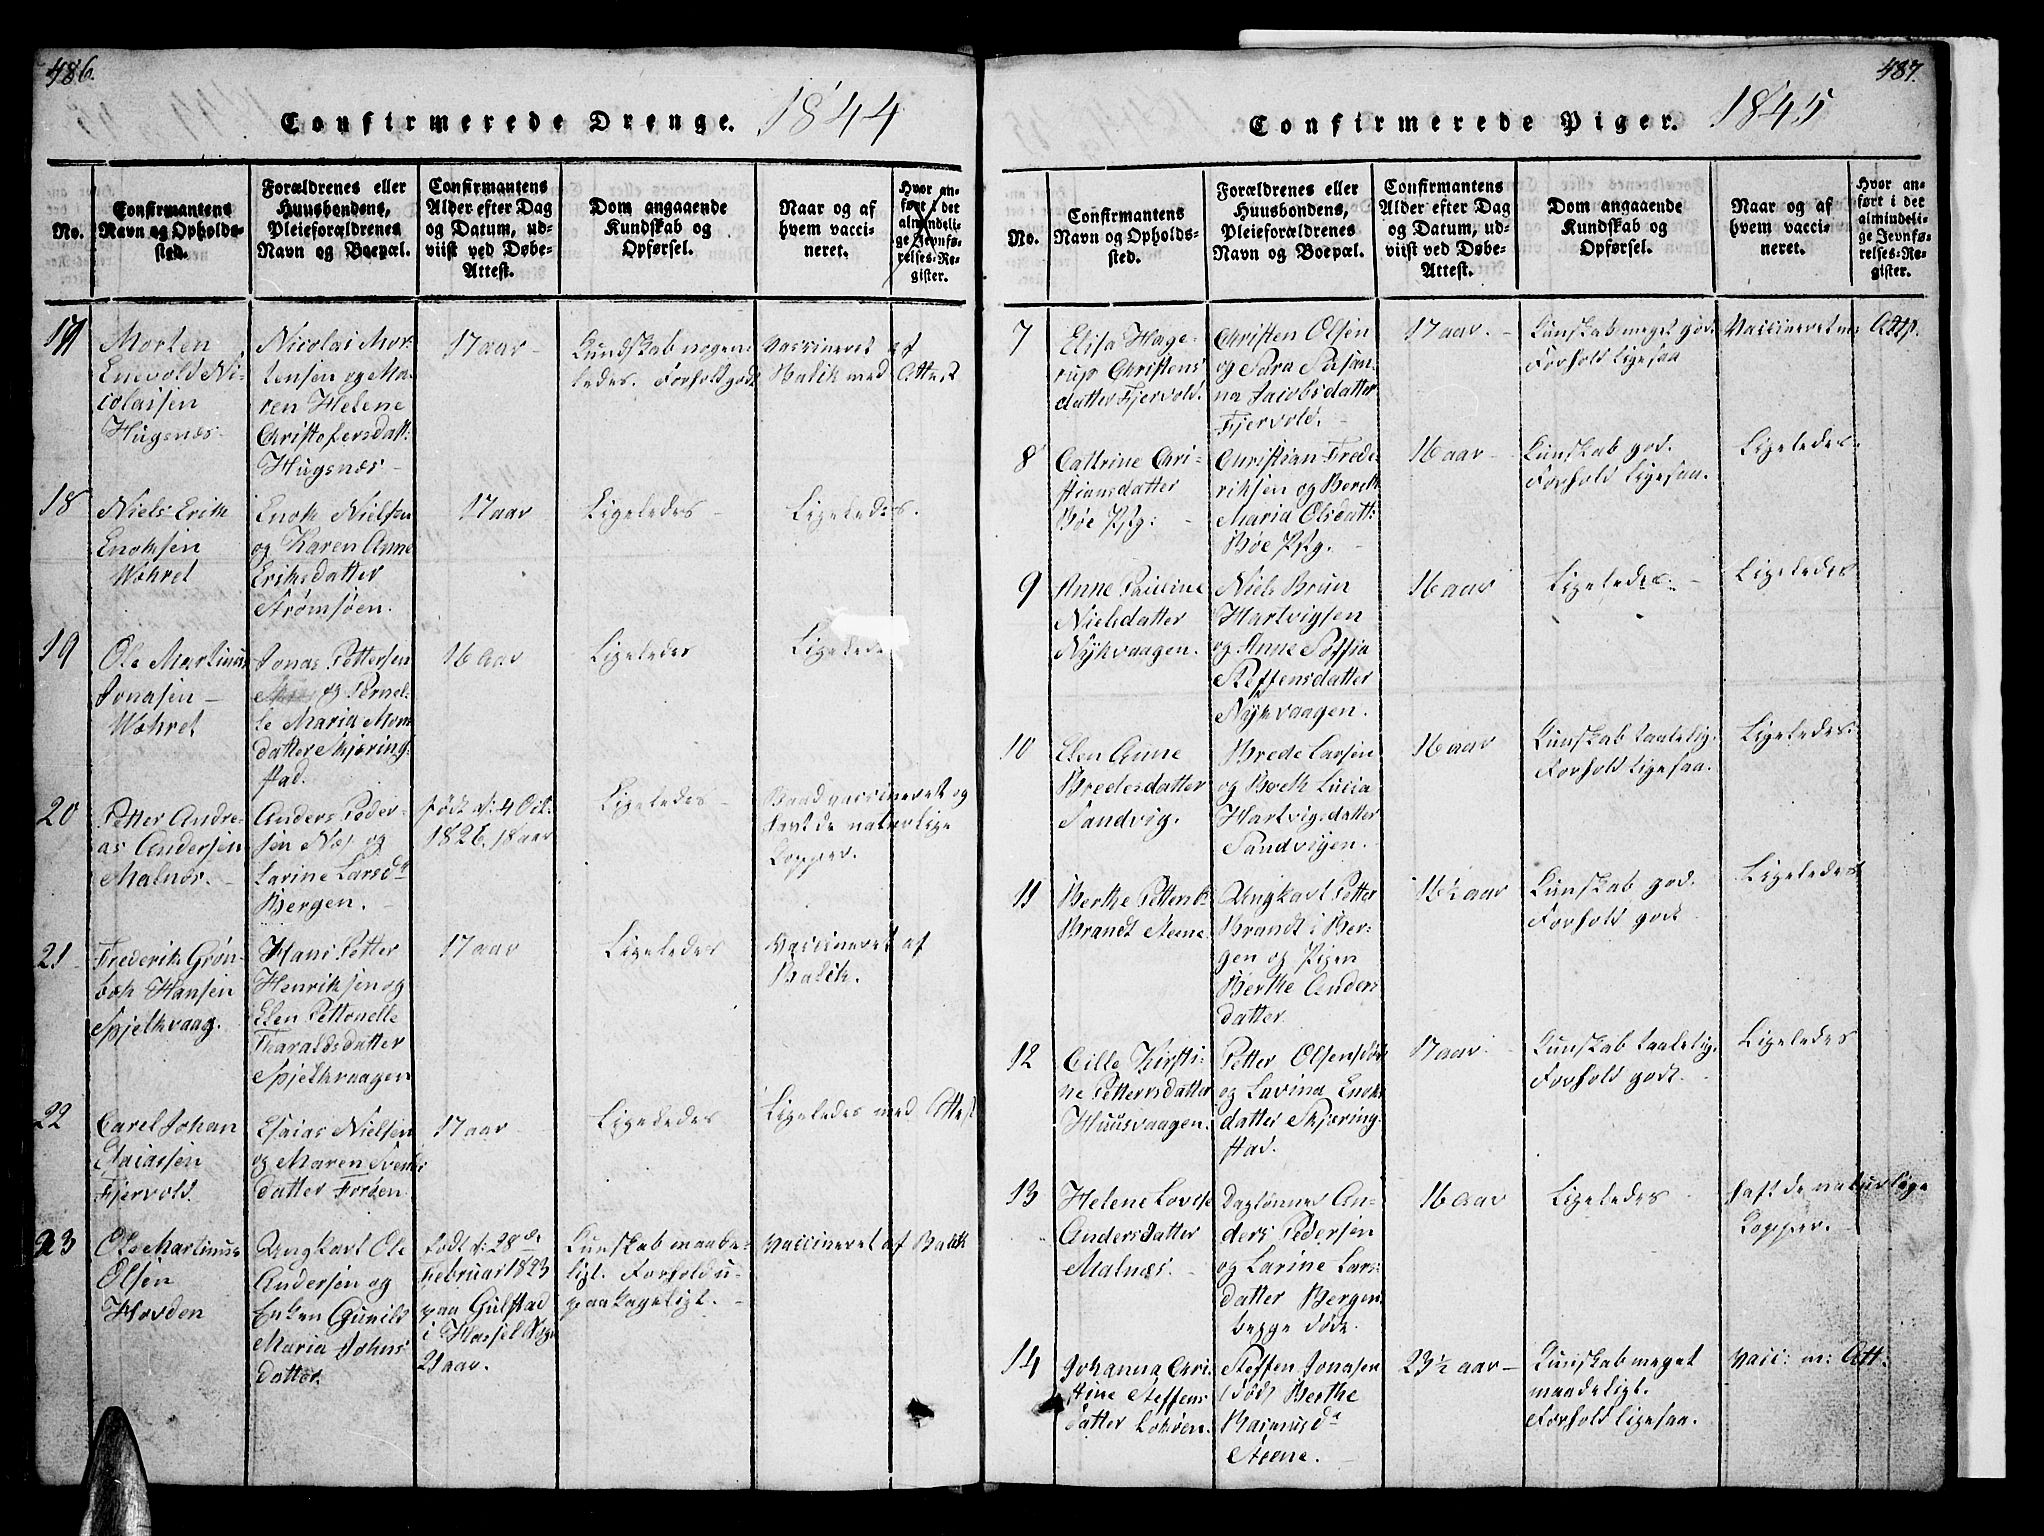 486.
Confirmerede Drenge. 1844
No.
Confirmantens
Navn og Opholds-
sted.
Forældrenes eller
Huusbondens,
Pleieforældrenes
Navn og Boepæl.
Confirmantens
Alder efter Dag
og Datum, ud-
viist ved Døbe-
Attest.
Dom angaaende
Kundskab og
Opførsel.
Naar og af
hvem vacci-
neret.
Hvor an-
ført i det
almindeli-
ge Jevnfø-
relses-Re-
gister.
17
Morten
Enevold Ni-
colaisen
Hugsnæs
Nicolai Mor-
tensen og Ma-
ren Helene
Christofersdatt:
Hugsnæs
17 aar
Kundskab nogen-
ledes. Forhold godt
Vaccineret af
Balik med Attest
18
Niels Erik
Enoksen
Wohret
Enok Nielsen
og Karen Anne
Eriksdatter
Strømsøen.
17 aar
Ligeledes
Ligeledes.
19
Ole Martinus
Jonasen
Wohret
Jonas Pettersen
og Pernel-
le Maria
datter Skjæring-
stad.
16 aar
Ligeledes
Ligeledes
20
Petter Andre-
as Andersen
Malnæs.
Anders Peder-
sen Næs og
Larine Larsd.
Bergen.
født d: 4 Oct.
1826. 18 aar
Ligeledes
Baad vaccineret og
havt de naturlige
Kopper.
21
Frederik Grøn-
bek Hansen
Spjelkvaag.
Hans Petter
Henriksen og
Elen Pettonelle
Tharaldsdatter
Spjelkvaagen
17 aar
Ligeledes
Vaccineret af
Balik.
22
Carel Johan
Esaiassen
Fjervold
Esaias Nielsen
og Maren
datter Forøen
17 aar
Ligeledes
Ligeledes med Attest
23
Ole Martinus
Olsen
Hovden
Ungkarl Ole
Andersen og
Enken Gunild
Maria Johns
datter.
født d: 28de
Februar 1823
paa Gulstad
i Hassel Sogn
21 aar.
Kunskab maade-
ligt. Forhold u-
paaklageligt.
Vaccineret af Balik
487.
Confirmerede Piger. 1845
No.
Confirmantens
Navn og Opholds-
sted.
Forældrenes eller
Huusbondens,
Pleieforældrenes
Navn og Boepæl.
Confirmantens
Alder efter Dag
og Datum, ud-
viist ved Døbe-
Attest.
Dom angaaende
Kundskab og
Opførsel.
Naar og af
hvem vacci-
neret.
Hvor an-
ført i det
almindeli-
ge Jevnfø-
relses-Re-
gister.
7
Elisa Hage-
rup Christens
datter Fjervold.
Christen Olsen
og Sara Susan-
na Jacobsdatter
Fjervold.
17 aar.
Kunskab meget god.
Forhold ligesaa
Vaccineret m: Att.
8
Cattrine Chri-
stiansdatter
Bøe Psg:
Christian Frede-
riksen og Bereth
Maria Olsdatt:
Bøe Psg.
16 aar
Kunskab god.
Forhold ligesaa.
Ligeledes.
9
Anne Pauline
Nielsdatter
Nykvaagen.
Niels Brun
Hartvigsen
og Anne Soffia
Steffensdatter
Nykvaagen.
16 aar
Ligeledes.
Ligeledes
10
Elen Anne
Bredesdatter
Sandvig.
Brede Larsen
og Breth Lucia
Hartvigsdatter
Sandvigen.
16 aar
Kunskab taalelig.
Forhold ligesaa.
Ligeledes.
11
Berthe
Brandt Steene
Ungkarl Petter
Brandt i Ber-
gen og Pigen
Berthe Anders
datter.
16½ aar
Kunskab god.
Forhold godt
Ligeledes
12
Cille Kirsti-
ne Pettersdatter
Huusvaagen.
Petter Olsen
og Lavina Enoks
datter Skjæring-
stad.
17 aar.
Kunskab taalelig.
Forhold godt.
Ligeledes
13
Helene Lovise
Andersdatter
Malnæs.
Daglønner An-
ders Pedersen
og Larine Lars-
datter Bergen
begge døde
16 aar
Ligeledes
havt de naturlige
Kopper.
14
Johanna Chri-
stine Steffens
datter
Steffen Jonasen
(død) Berthe
Rasmusd.
Steene.
23½ aar
Kunskab meget
maadeligt.
Forhold ligesaa.
Vacc: m: Att.